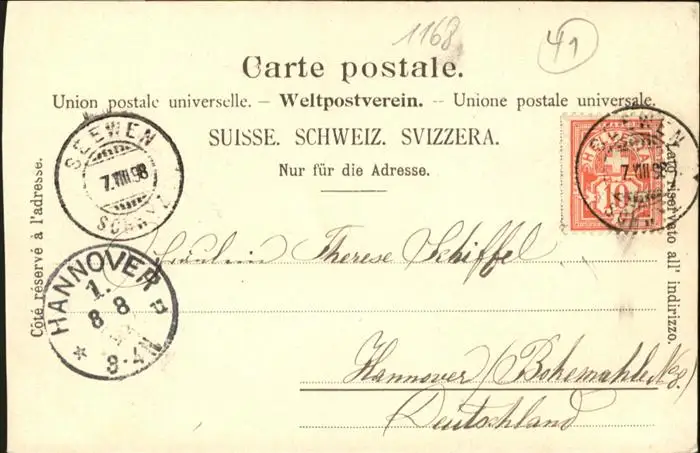 1168
41
Carte postale.
Union postale universelle. – Weltpostverein. – Unione postale universale.
SUISSE. SCHWEIZ. SVIZZERA.
Nur für die Adresse.
Côté réservé à l'adresse.
Lato riservato all' indirizzo.
SEEWEN
7.VIII.98
SCHWYZ
HELVETIA
10
SEEWEN
7.VIII.98
HANNOVER
1.
8 8
8-9N
Fräulein Therese Schiffel
Hannover / Bohemahle No 8.
Deutschland